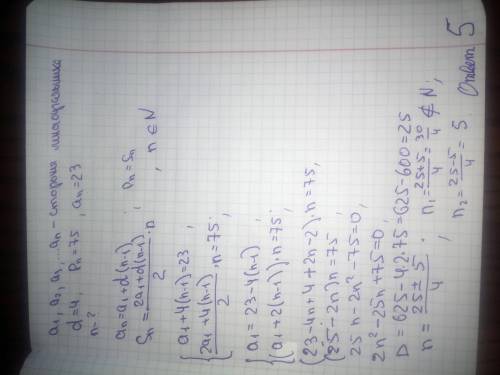 a₁, a₂, a₃, ... aₙ - стороны многоугольника
d=4, Pₙ=75, aₙ=23
n-?
aₙ=a₁+d(n-1)
Sₙ= (2a₁+d(n-1))/2 · n ; Pₙ=Sₙ, n∈N
{ a₁+4(n-1)=23;
(2a₁+4(n-1))/2 · n=75;
{ a₁=23-4(n-1)
(a₁+2(n-1))·n=75;
(23-4n+4+2n-2)·n=75,
(25-2n)n=75
25n-2n²-75=0,
2n²-25n+75=0,
D=625-4·2·75=625-600=25
n= (25±5)/4 ; n₁= (25+5)/4 = 30/4 ∉ N;
n₂= (25-5)/4 = 5 Ответ 5